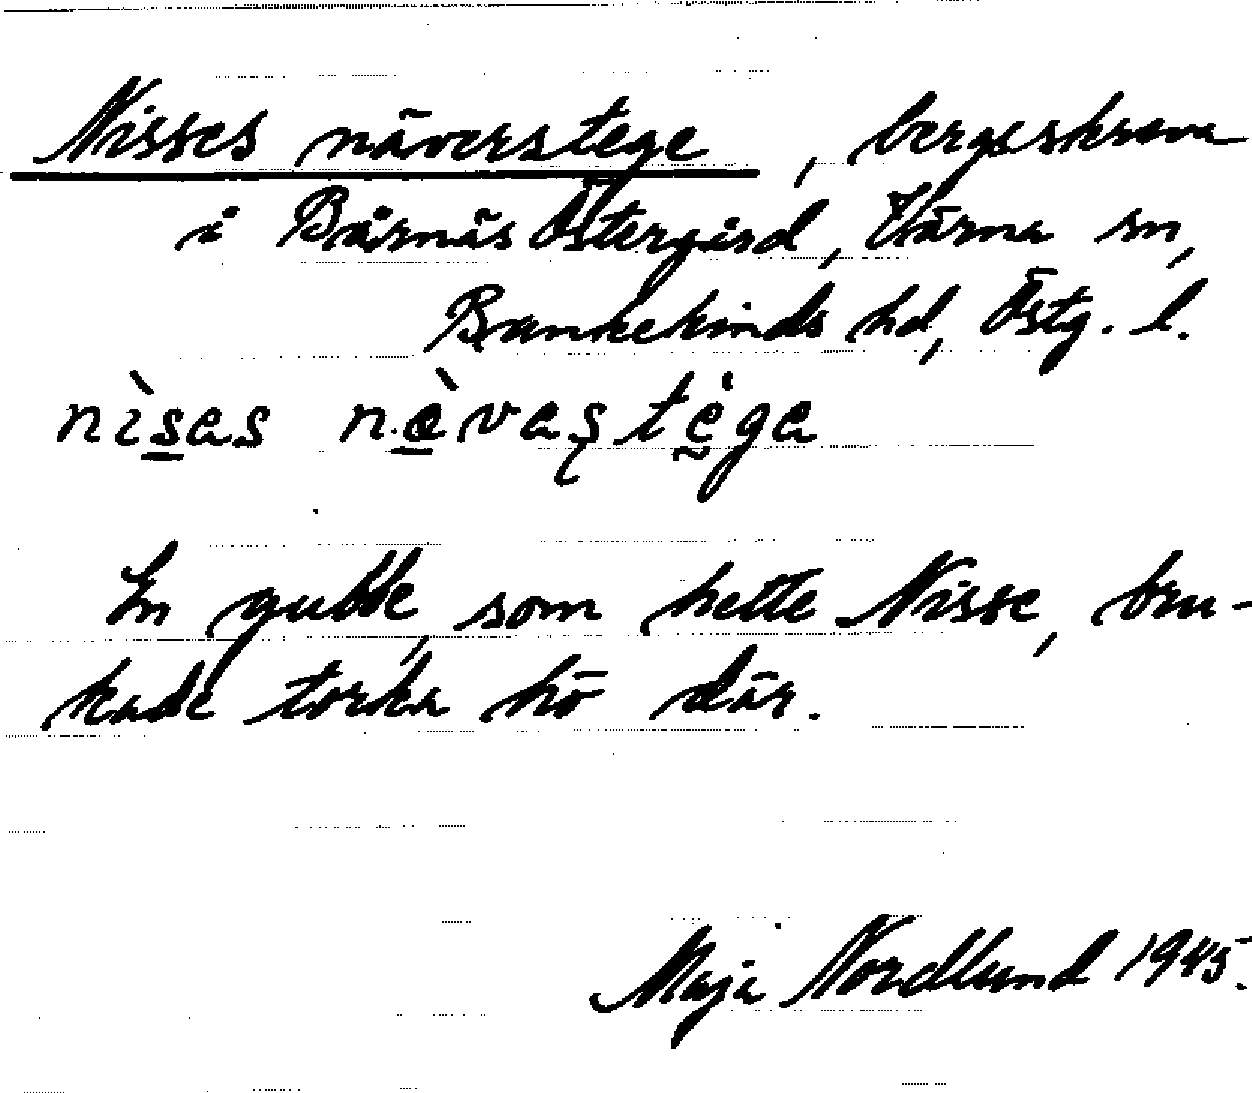 Nisses näverstege, bergsskreva
i Bårnäs Östergård, Värna sn,
Bankekinds hd, Östg. l.
En gubbe, som hette Nisse, bru-
kade torka hö där.
Maja Nordlund 1945.